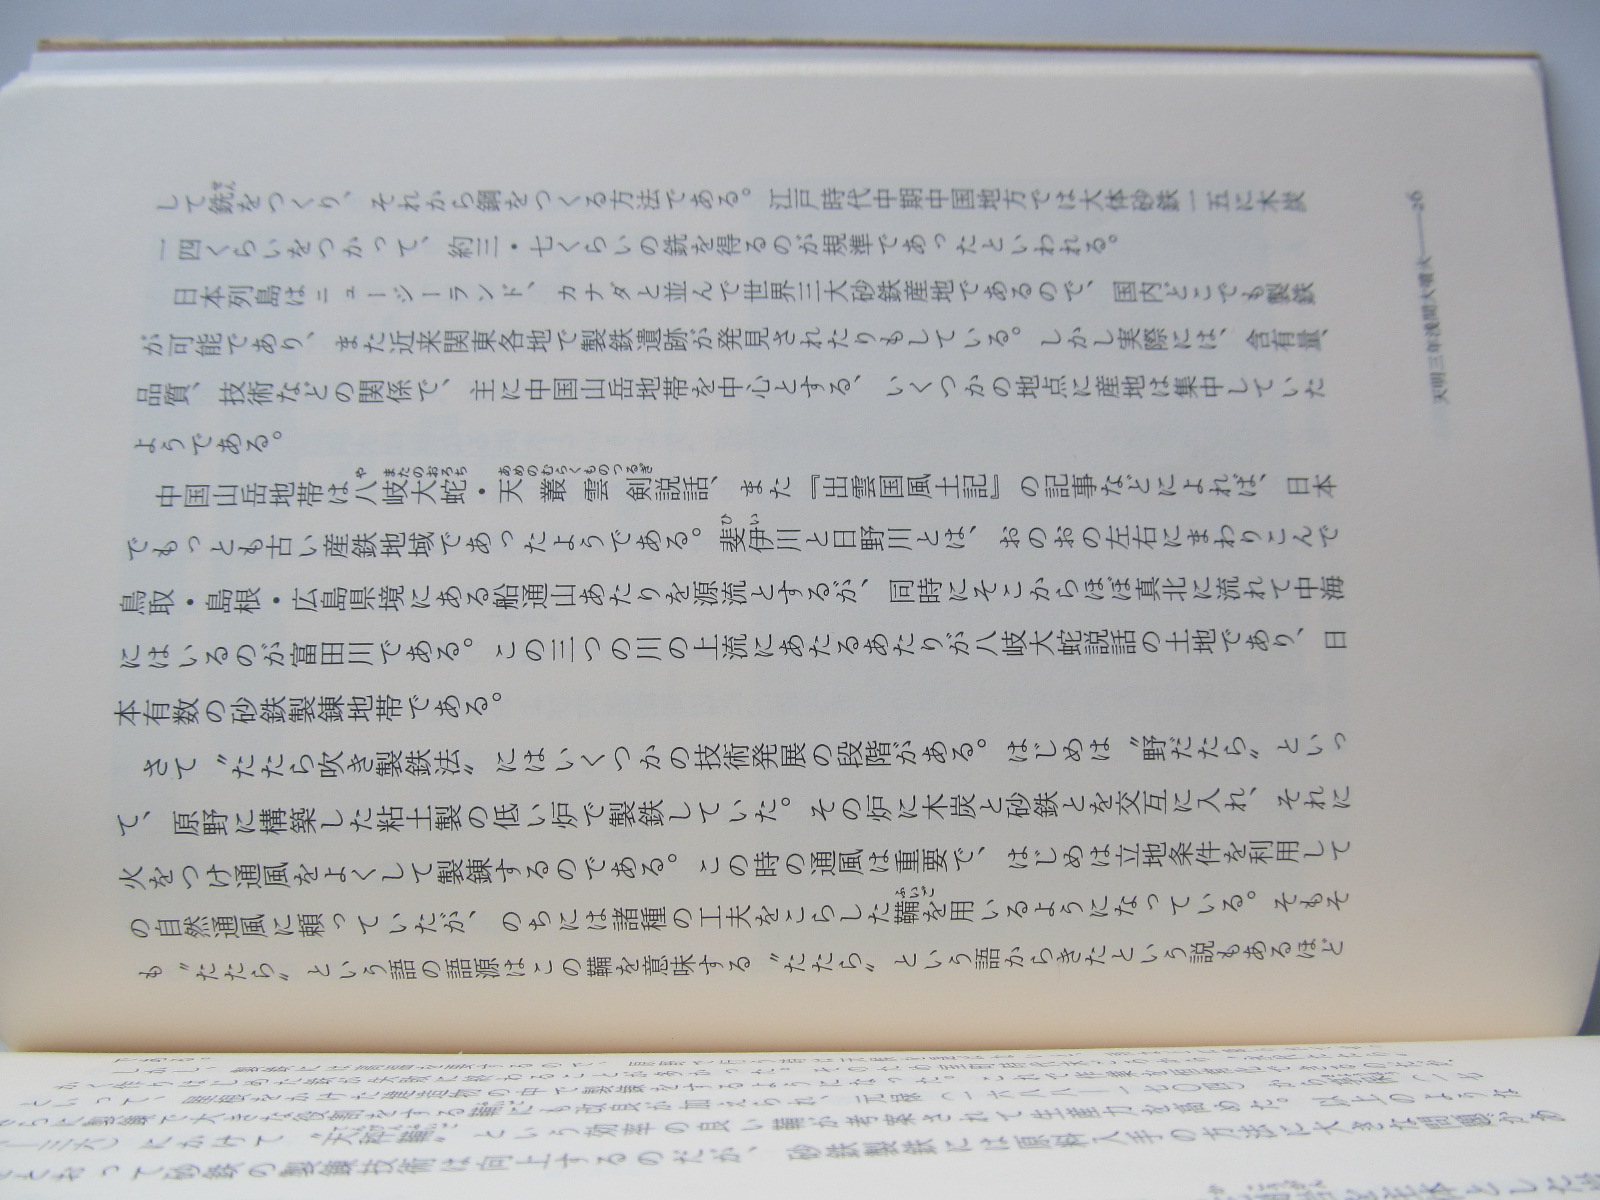 天明三年浅間大噴火――26
して銑をつくり、それから鋼をつくる方法である。江戸時代中期中国地方では大体砂鉄一五に木炭
一四くらいをつかって、約三・七くらいの銑を得るのが規準であったといわれる。
日本列島はニュージーランド、カナダと並んで世界三大砂鉄産地であるので、国内どこでも製鉄
が可能であり、また近来関東各地で製鉄遺跡が発見されたりもしている。しかし実際には、含有量、
品質、技術などの関係で、主に中国山岳地帯を中心とする、いくつかの地点に産地は集中していた
ようである。
中国山岳地帯は八岐大蛇・天叢雲剣説話、また『出雲国風土記』の記事などによれば、日本
でもっとも古い産鉄地域であったようである。斐伊川と日野川とは、おのおの左右にまわりこんで
鳥取・島根・広島県境にある船通山あたりを源流とするが、同時にそこからほぼ真北に流れて中海
にはいるのが富田川である。この三つの川の上流にあたるあたりが八岐大蛇説話の土地であり、日
本有数の砂鉄製錬地帯である。
さて〝たたら吹き製鉄法〟にはいくつかの技術発展の段階がある。はじめは〝野だたら〟といっ
て、原野に構築した粘土製の低い炉で製鉄していた。その炉に木炭と砂鉄とを交互に入れ、それに
火をつけ通風をよくして製錬するのである。この時の通風は重要で、はじめは立地条件を利用して
の自然通風に頼っていたが、のちには諸種の工夫をこらした鞴を用いるようになっている。そもそ
も〝たたら〟という語の語源はこの鞴を意味する〝たたら〟という語からきたという説もあるほど
である。
しかし、製鉄には高温を要するので、
かく作りはじめた鉄が失敗に終わることが多かった。そのため室町時代末
といって、屋根をかけた建造物の中で製鉄をするようになった。これで作業を
さらに製鉄で大きな役割をする鞴にも改良が加えられ、元禄（一六八八―一七〇四）から享保（一七
―三六）にかけて〝天秤鞴〟という効率の良い鞴が考案されて生産力を高めた。以上のような
ことによって砂鉄の製錬技術は向上するのだが、砂鉄製鉄には原料入手の方法に大きな問題があ